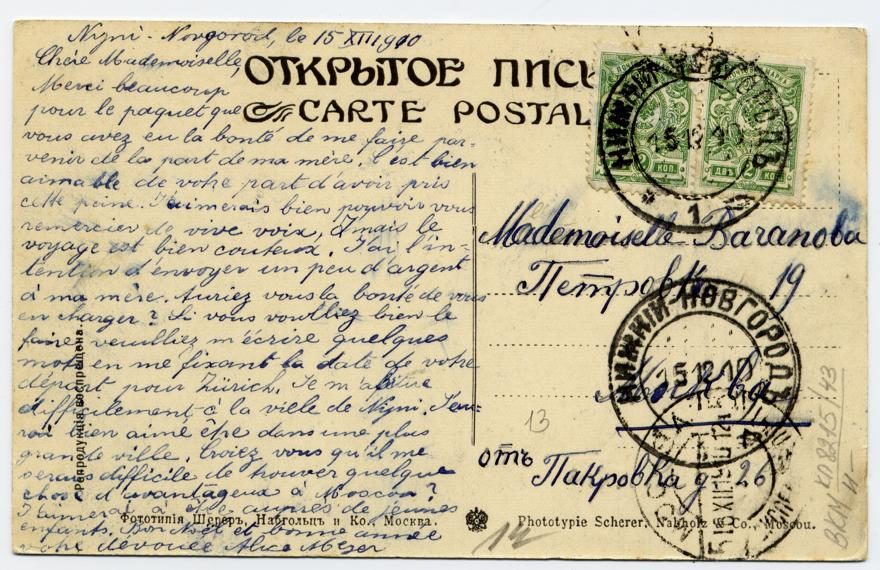 Nijni-Novgorod, le 15 XII 1910
Chère Mademoiselle,
Merci beaucoup
pour le paquet que
vous avez eu la bonté de me faire par-
venir de la part de ma mère. C'est bien
aimable de votre part d'avoir pris
cette peine. J'aimerais bien pouvoir vous
remercier de vive voix, mais le
voyage est bien couteux. J'ai l'in-
tention d'envoyer un peu d'argent
à ma mère. Auriez vous la bonté de vous
en charger? Si vous voulliez bien le
faire veuilliez m'écrire quelques
mots en me fixant la date de votre
départ pour Zürich. Je m'abitue
difficilement à la ville de Nijni. J'au-
rai bien aimé être dans une plus
grande ville. Croiez vous qu'il me
serais difficile de trouver quelque
chose d'avantageux à Moscou?
J'aimerai à être auprès de jeunes
enfants. Bon Noël et bonne année
votre dévouée Alice Meyer
ОТКРЫТОЕ
CARTE POSTAL
Mademoiselle Baranova
Петровка 19
Москва
отъ Пакровка д 26
НИЖНІЙ НОВГОРОДЪ
15 12 10
1
НИЖНІЙ НОВГОРОДЪ
15 12 10
ДВѢ 2 КОП.
Репродукція воспрещена.
Фототипія Шереръ, Набгольцъ и Ко. Москва.
Phototypie Scherer, Nabholz & Co., Moscou.
13
12